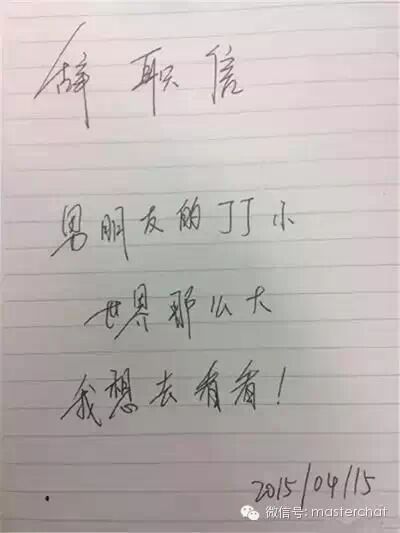 辞职信
男朋友的丁丁小
世界那么大
我想去看看!
2015/04/15
微信号: masterchat